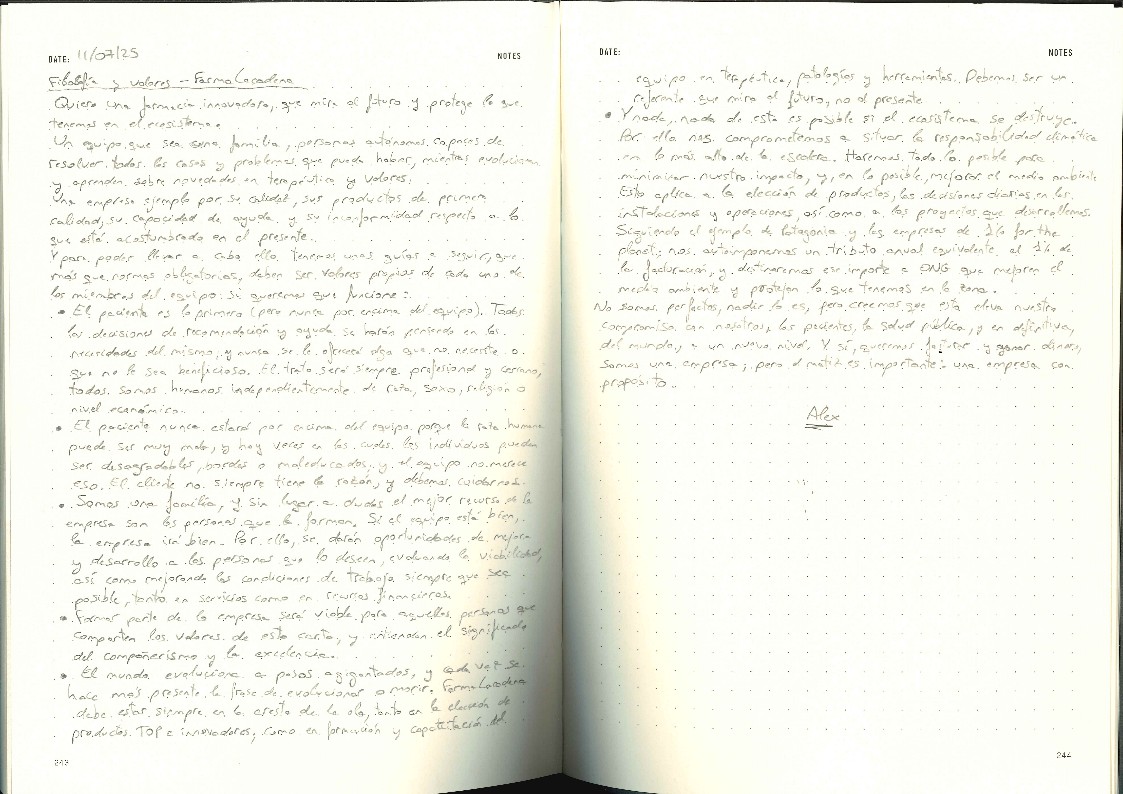 DATE: 11/07/25 NOTES
Filosofía y valores - FarmaLacadena
Quiero una farmacia innovadora, que mira al futuro y protege lo que
tenemos en el ecosistema.
Un equipo que sea una familia, personas autónomas capaces de
resolver todos los casos y problemas que pueda haber, mientras evolucionan
y aprenden sobre novedades en terapéutica y valores.
Una empresa ejemplo por su calidad, sus productos de primera
calidad, su capacidad de ayuda, y su inconformidad respecto a lo
que está acostumbrado en el presente.
Y para poder llevar a cabo ello, tenemos unas guías a seguir, que
más que normas obligatorias, deben ser valores propios de cada uno de
los miembros del equipo si queremos que funcione:
• El paciente es lo primero (pero nunca por encima del equipo). Todas
las decisiones de recomendación y ayuda se harán pensando en las
necesidades del mismo, y nunca se le ofrecerá algo que no necesite o
que no le sea beneficioso. El trato será siempre profesional y cercano,
todos somos humanos independientemente de raza, sexo, religión o
nivel económico.
• El paciente nunca estará por encima del equipo porque la raza humana
puede ser muy mala, y hay veces en las cuales los individuos pueden
ser desagradables, bordes o maleducados, y el equipo no merece
eso. El cliente no siempre tiene la razón, y debemos cuidarnos.
• Somos una familia, y sin lugar a dudas el mejor recurso de la
empresa son las personas que la forman. Si el equipo está bien,
la empresa irá bien. Por ello, se darán oportunidades de mejora
y desarrollo a las personas que lo deseen, evaluando la viabilidad,
así como mejorando las condiciones de trabajo siempre que sea
posible, tanto en servicios como en recursos financieros.
• Formar parte de la empresa será viable para aquellas personas que
comparten los valores de esta carta, y entiendan el significado
del compañerismo y la excelencia.
• El mundo evoluciona a pasos agigantados, y cada vez se
hace más presente la frase de evolucionar o morir. FarmaLacadena
debe estar siempre en la cresta de la ola, tanto en la elección de
productos TOP e innovadores, como en formación y capacitación del
243
DATE: NOTES
equipo en terapéutica, patologías y herramientas. Debemos ser un
referente que mira al futuro, no al presente.
• Y nada, nada de esto es posible si el ecosistema se destruye.
Por ello nos comprometemos a situar la responsabilidad climática
en lo más alto de la escalera. Haremos todo lo posible para
minimizar nuestro impacto, y, en lo posible, mejorar el medio ambiente
Esto aplica a la elección de productos, las decisiones diarias en las
instalaciones y operaciones, así como a los proyectos que desarrollemos.
Siguiendo el ejemplo de Patagonia y las empresas de 1% for the
planet, nos autoimponemos un tributo anual equivalente al 1% de
la facturación, y destinaremos ese importe a ONG que mejoren el
medio ambiente y protejan lo que tenemos en la zona.
No somos perfectos, nadie lo es, pero creemos que esto eleva nuestro
compromiso con nosotros, los pacientes, la salud pública, y en definitiva,
del mundo, a un nuevo nivel. Y sí, queremos facturar y ganar dinero,
somos una empresa, pero el matiz es importante: una empresa con
propósito.
Alex
244